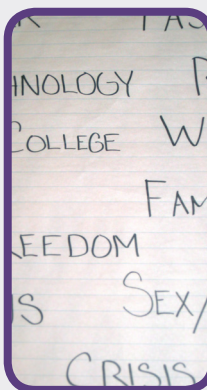 HNOLOGY
COLLEGE W
FAM
EEDOM
SEX/
CRISIS